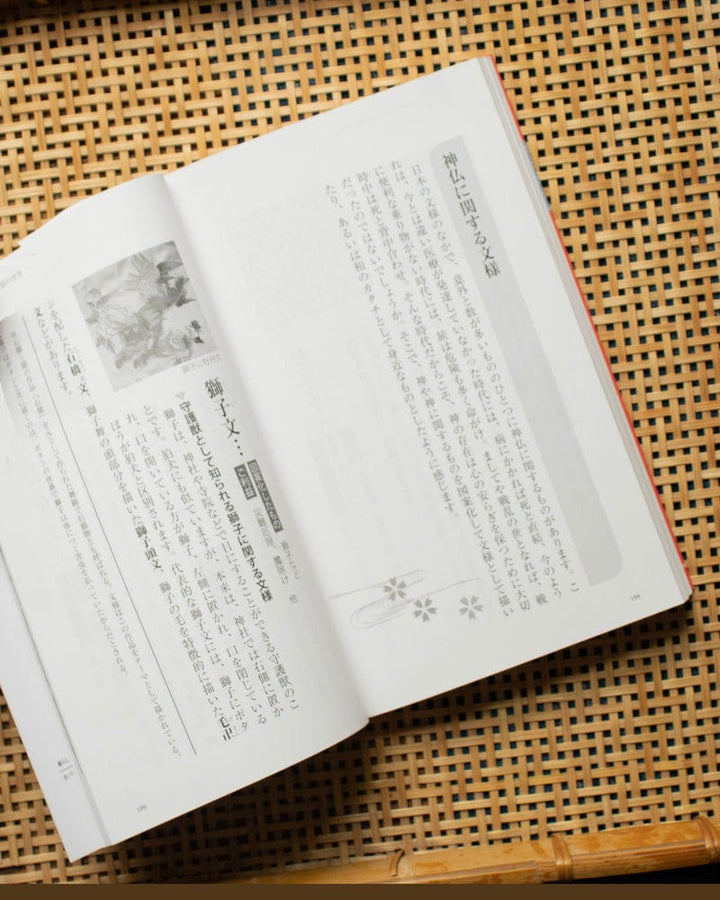 神仏に関する文様
日本の文様のなかで、意外と数が多いもののひとつに神仏に関するものがあります。こ
れは、今とは違い医療が発達していなかった時代には、病にかかれば死と直結、今のよう
に便利な乗り物がない時代には、旅は危険も多く命がけ、ましてや戦乱の世となれば、戦
時中は死と背中合わせ。そんな時代だからこそ、神の存在は心の安らぎを保つために大切
だったのではないでしょうか。そこで、神や神に関するものを図案化して文様として描い
たり、あるいは和のカタチとして身近なものとしたように感じます。
198
獅子文…
図案化したもの 獅子など
ご利益 災難厄除、魔除け 他
守護獣として知られる獅子に関する文様
獅子は、神社や寺院などで目にすることができる守護獣のこ
とです。狛犬にも似ていますが、本来は、神社では右側に置か
れ、口を開いている方が獅子、左側に置かれ、口を閉じている
ほうが狛犬と区別されます。代表的な獅子文には、獅子にボタ
獅子に牡丹文
ンを配した「石橋」文、獅子舞の頭部分を描いた獅子頭文、獅子の毛を特徴的に描いた毛卍
文などがあります。
199